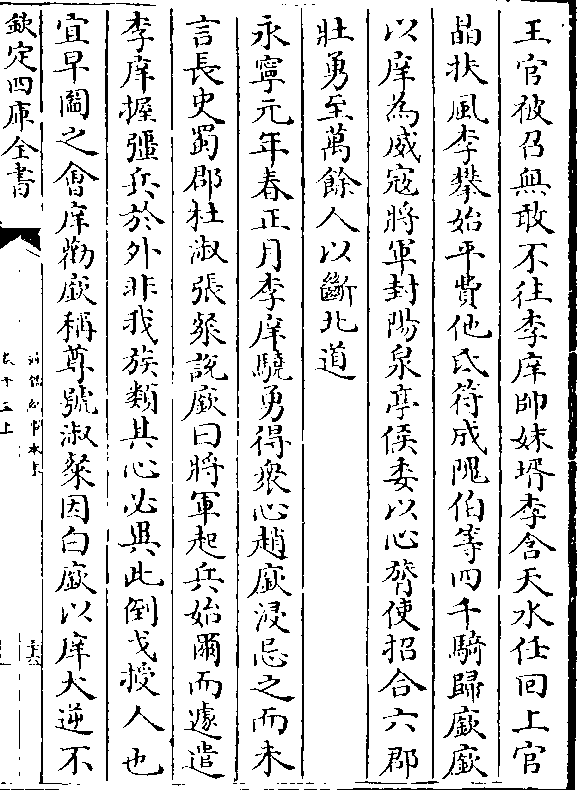 王官彼召無敢不往李庠帥妹壻李含天水任回上官
晶扶風李攀始平費他氐符成隗伯等四千騎歸廞廞
以庠為威寇將軍封陽泉亭侯委以心膂使招合六郡
壯勇至萬餘人以斷北道
永寧元年春正月李庠驍勇得衆心趙廞浸忌之而未
言長史蜀郡杜淑張粲説廞曰將軍起兵始爾而遽遣
李庠握彊兵於外非我族類其心必異此倒戈授人也
宜早圖之會庠勸廞稱尊號淑粲因白廞以庠大逆不
欽定四庫全書